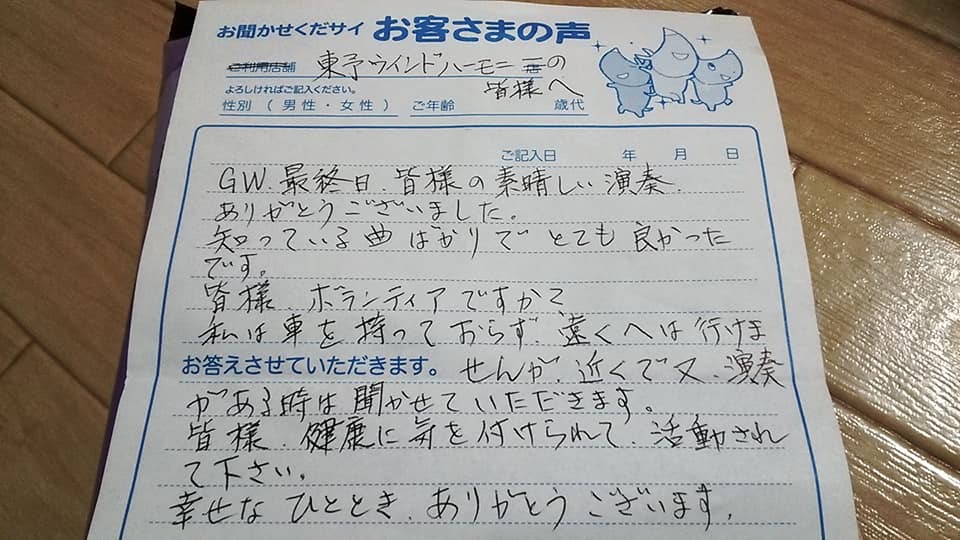 お聞かせくだサイ お客さまの声
ご利用店舗 東予ウインドハーモニー店の
よろしければご記入ください。 皆様へ
性別 ( 男性・女性 ) ご年齢 歳代
ご記入日 年 月 日
GW.最終日.皆様の素晴しい演奏.
ありがとうございました。
知っている曲ばかりでとても良かった
です。
皆様.ボランティアですか?
私は車を持っておらず.遠くへは行けま
お答えさせていただきます。 せんが.近くで又.演奏
がある時は聞かせていただきます。
皆様.健康に気を付けられて.活動され
て下さい。
幸せなひととき.ありがとうございます.